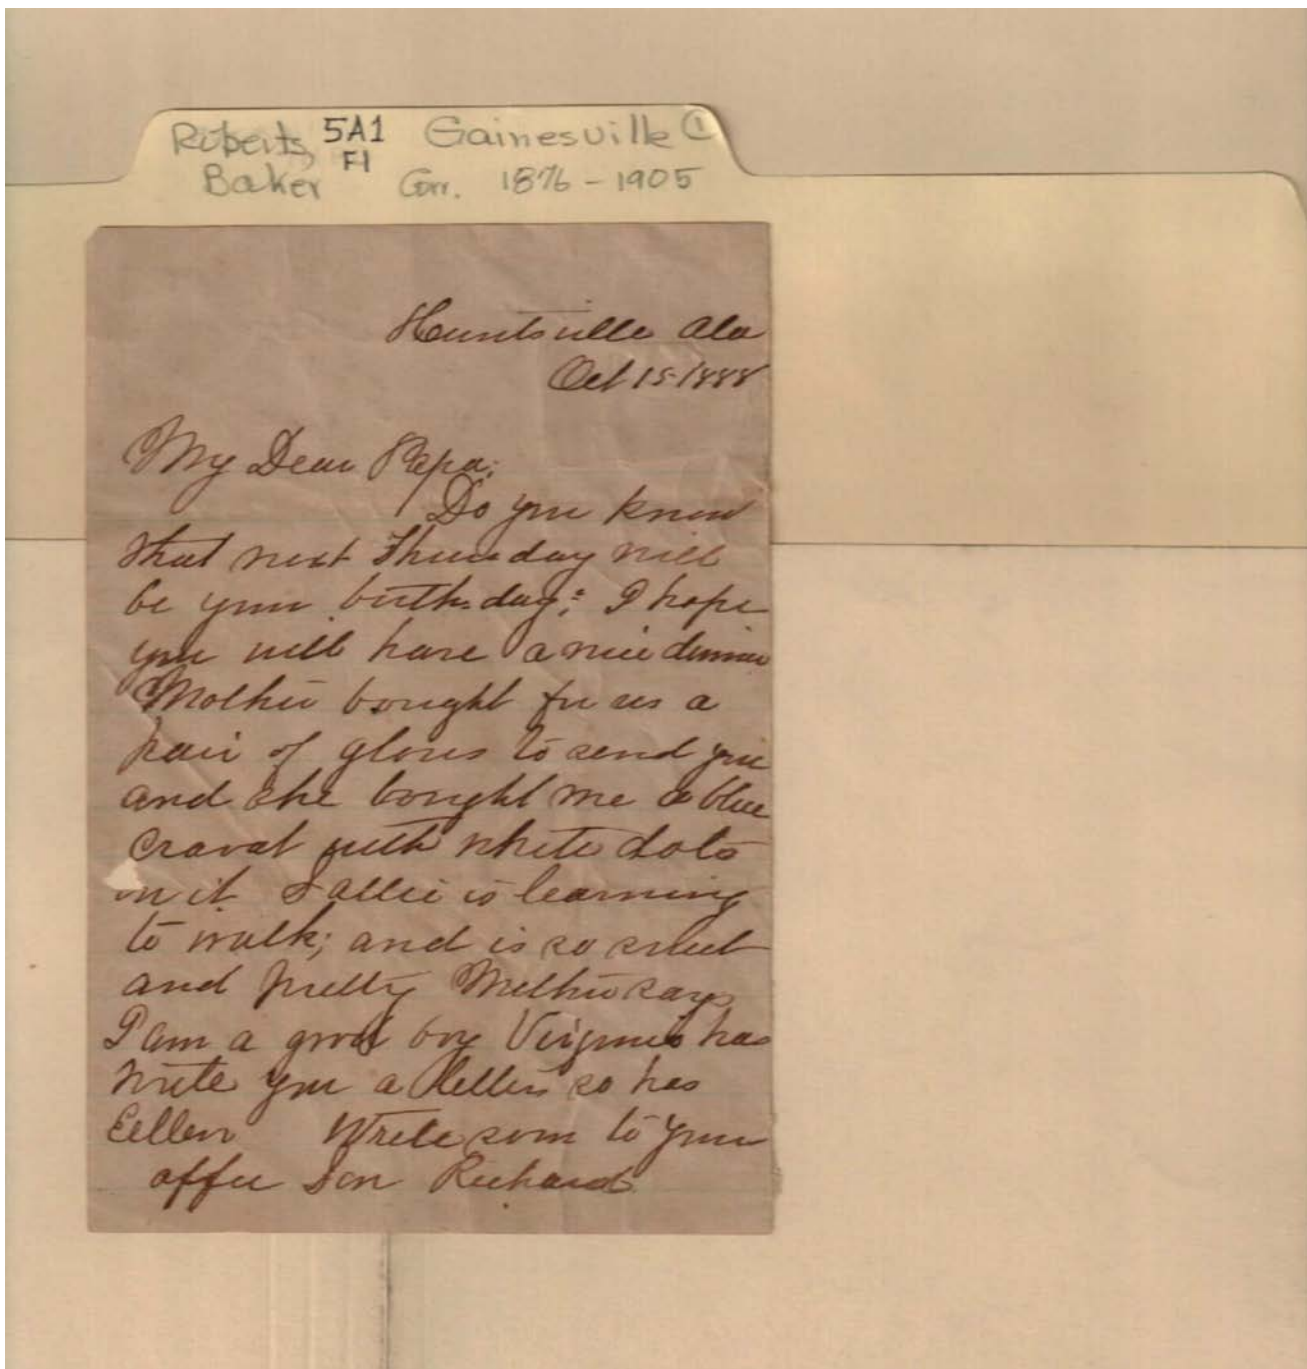 Roberts, 5A1 Gainesville ①
Baker F1 Corr. 1876-1905
Huntsville Ala
Oct 15 1888
My Dear Papa,
Do you know
that next Thursday will
be your birthday; I hope
you will have a nice dinner
Mother bought for us a
pair of gloves to send you
and she bought me a blue
cravat with white dots
on it Sallie is learning
to walk; and is so sweet
and pretty Mother says
I am a good boy Virginia has
write you a letter so has
Eellen Write soon to your
affec son Richard